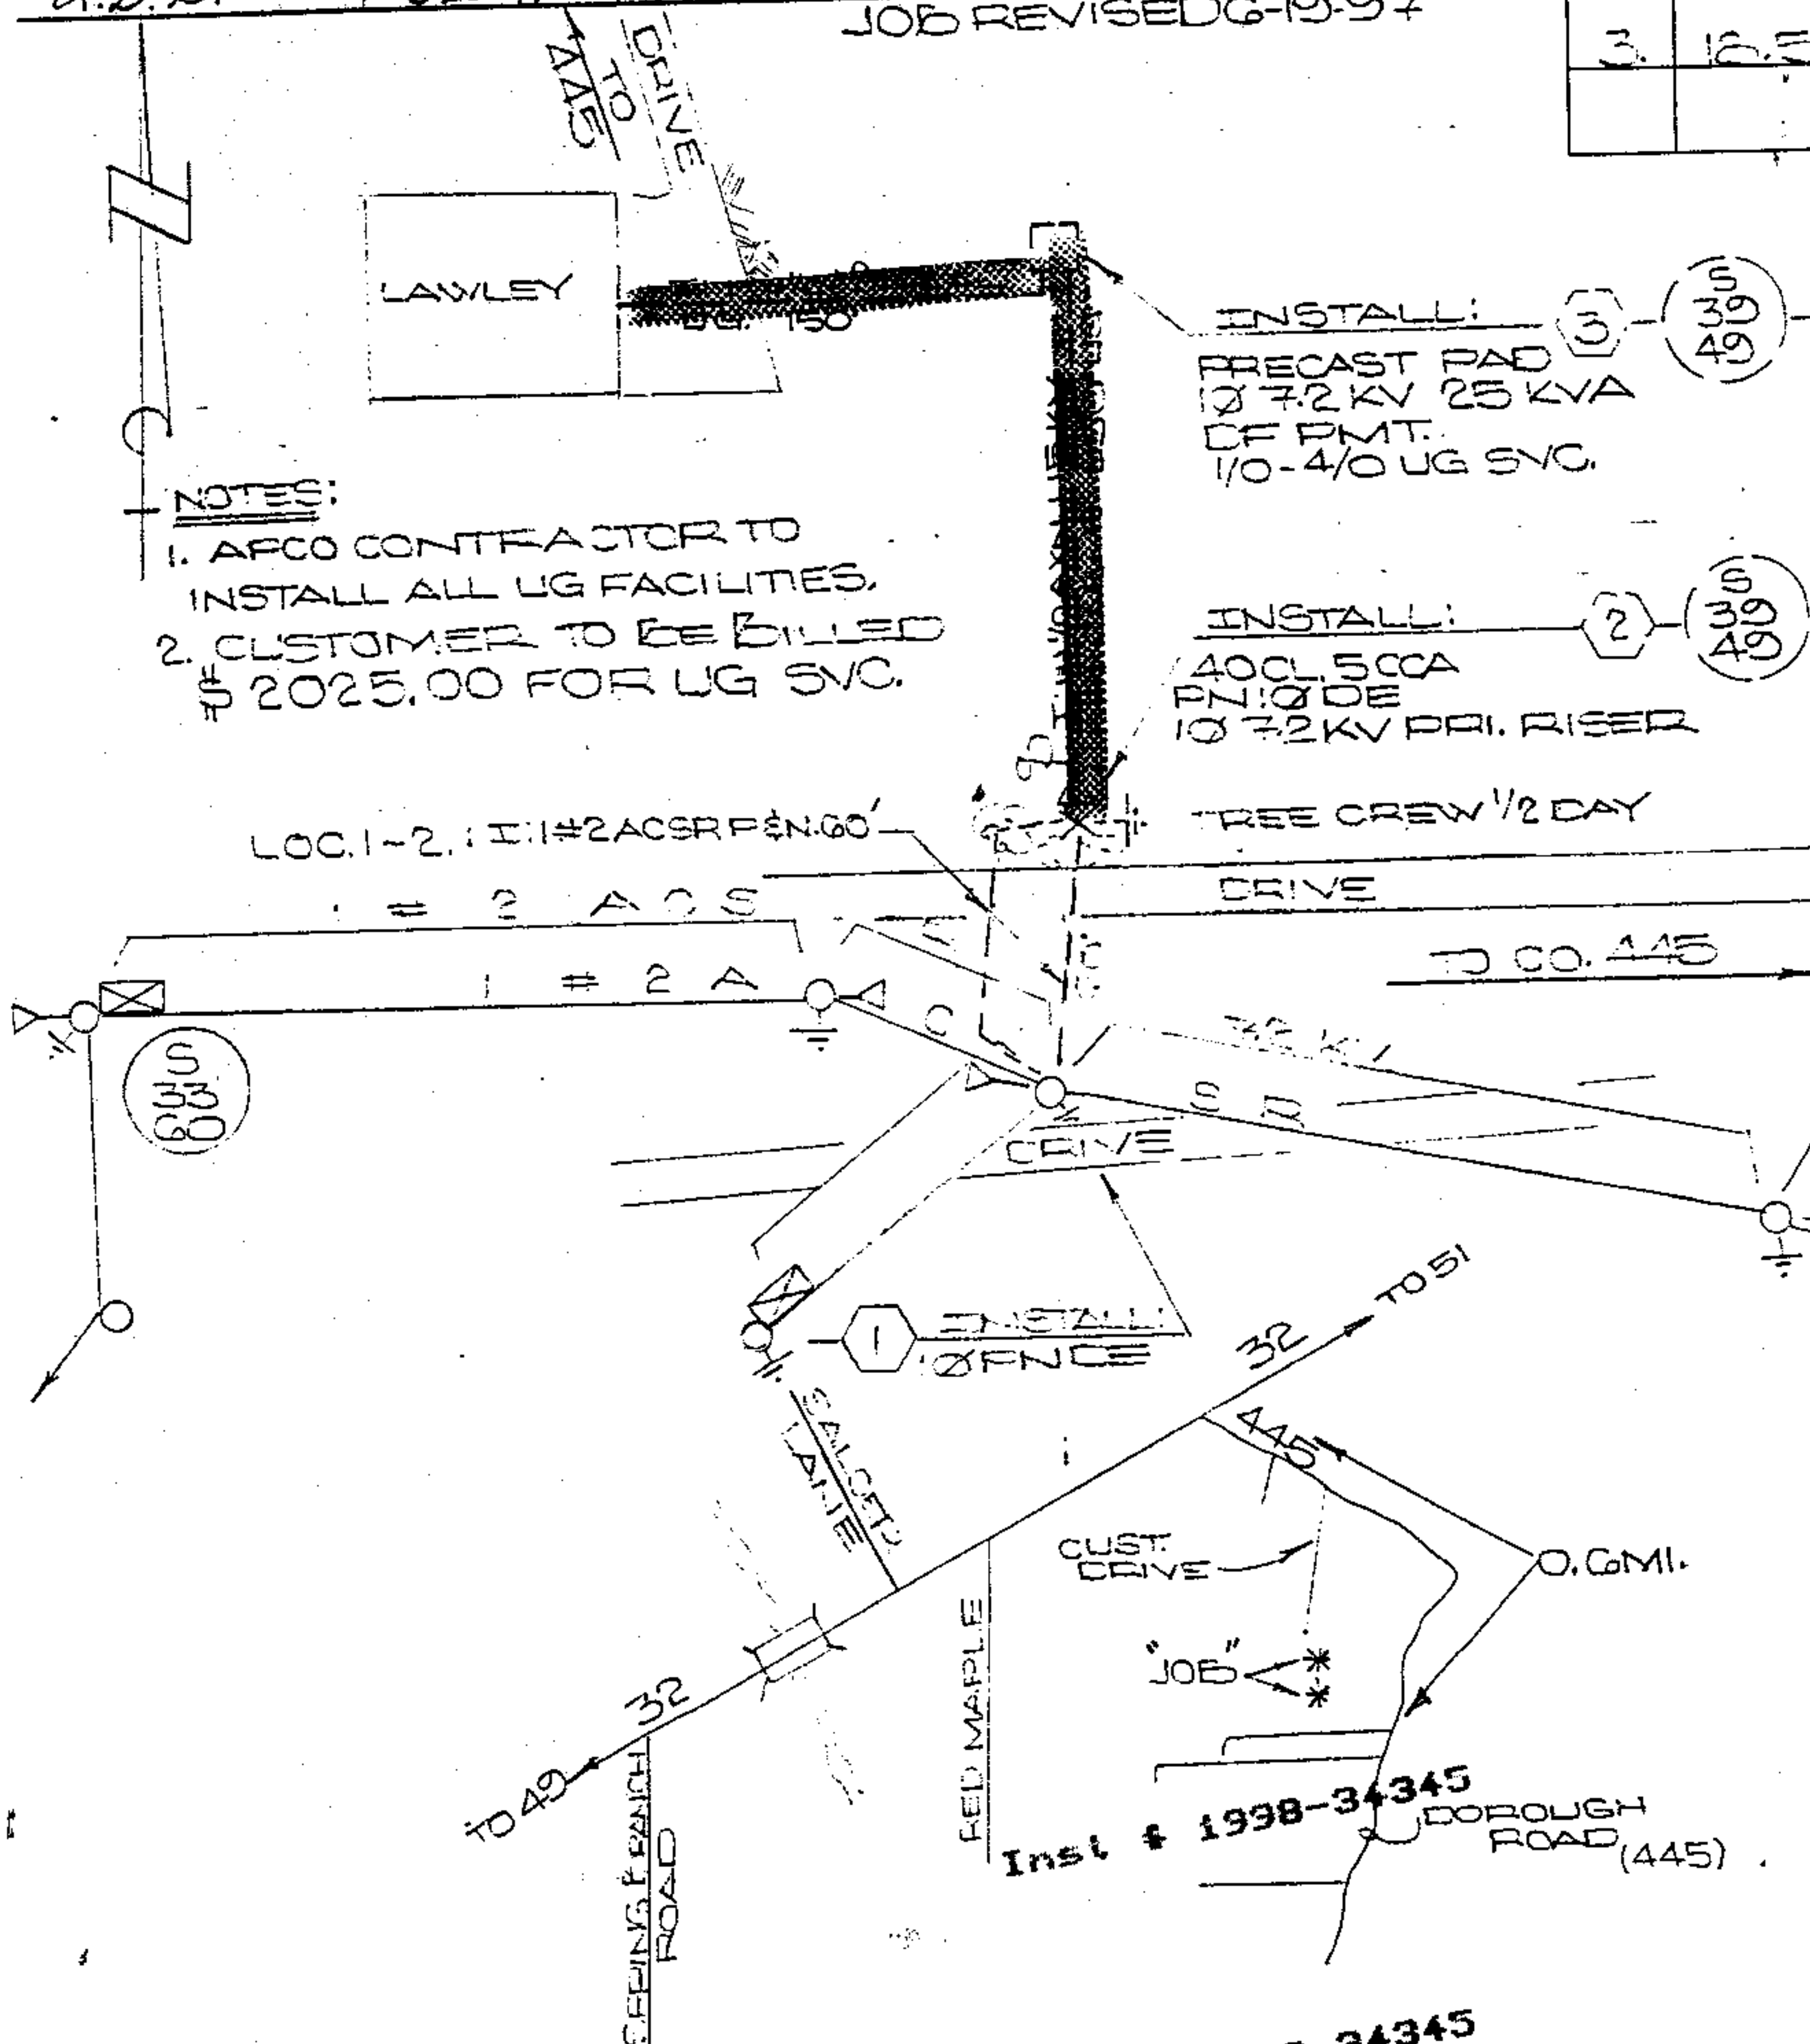 JOB REVISED 6-19-97
3.
DRIVE
TO
445
LAWLEY
150'
INSTALL:
3
S
39
49
PRECAST PAD
1Ø 7.2 KV 25 KVA
DF PMT.
1/0-4/0 UG SVC.
NOTES:
1. APCO CONTRACTOR TO
INSTALL ALL UG FACILITIES.
2. CUSTOMER TO BE BILLED
$2025.00 FOR UG SVC.
INSTALL:
2
S
39
49
40 CL. 5 CCA
PN 1Ø DE
1Ø 7.2 KV PRI. RISER
TREE CREW 1/2 DAY
LOC. 1-2.: I: 1#2 ACSR P&N. 60'
DRIVE
1 # 2 A C S
TO CO. 445
1 # 2 A C S R
7.2 KV
S
33
60
DRIVE
1
INSTALL:
1Ø PN DE
TO 51
32
445
CUST.
DRIVE
0.6 MI.
"JOB"
LANE
RED MAPLE
32
TO 49
ROAD
Inst # 1998-34345
DOROUGH
ROAD (445)
34345